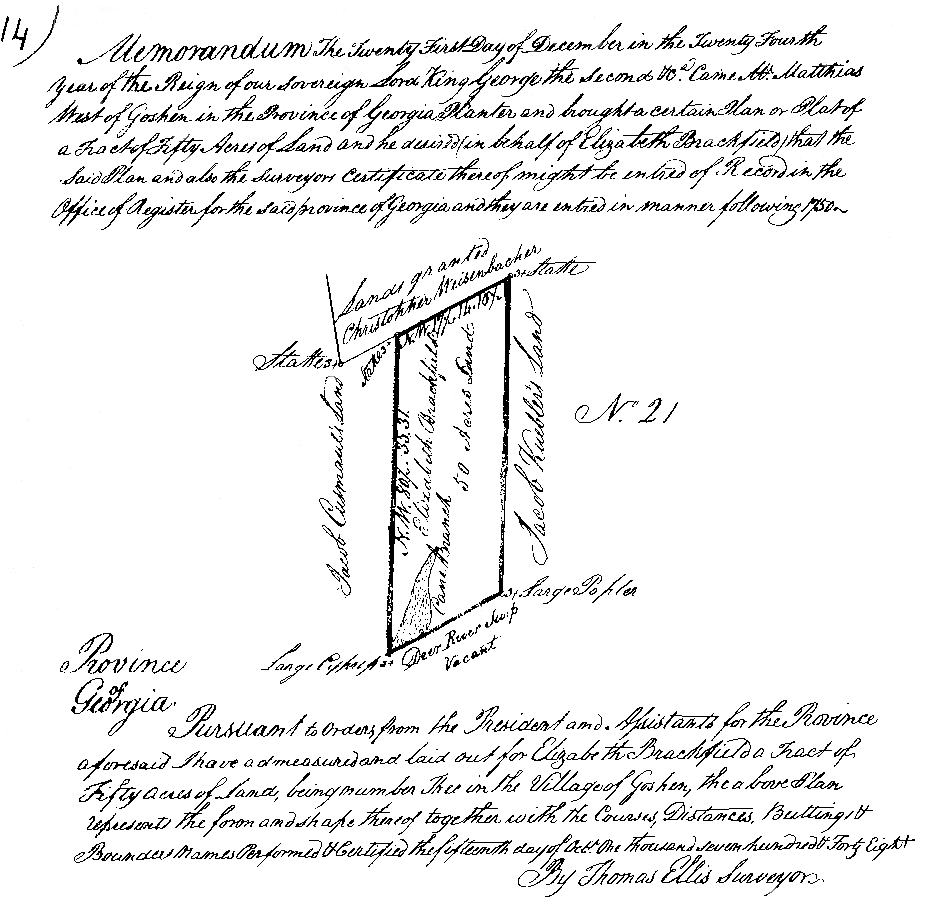 14)
Memorandum The Twenty First Day of December in the Twenty Fourth
Year of the Reign of our Sovereign Lord King George the Second &ca. Came Mr. Matthias
West of Goshen in the Province of Georgia Planter and bought a certain Plan or Plat of
a Tract of Fifty Acres of Land and he desired (in behalf of Elizabeth Brackfield) that the
Said Plan and also the surveyors Certificate thereof might be entred of Record in the
Office of Register for the said province of Georgia and they are entred in manner following 1750
Lands granted
Christopher Weisenbacher
Stake
Stake
Stake
Jacob Curmaul's Land
Elizabeth Brachfield
50 Acres Land
Cane Branch
Jacob Kuebler's Land
No. 21
Large Popler
Large Cypress
Deer River Swp
Vacant
Province
of
Georgia.
Pursuant to orders from the President and Assistants for the Province
aforesaid I have admeasured and laid out for Elizabeth Brachfield a Tract of
Fifty acres of Land, being number Thee in the Village of Goshen, the above Plan
represents the form and shape thereof together with the Courses, Distances, Buttings &
Bounders Names Performed & Certified the fifteenth day of Octr. One thousand seven hundred & Forty Eight
By Thomas Ellis Surveyor